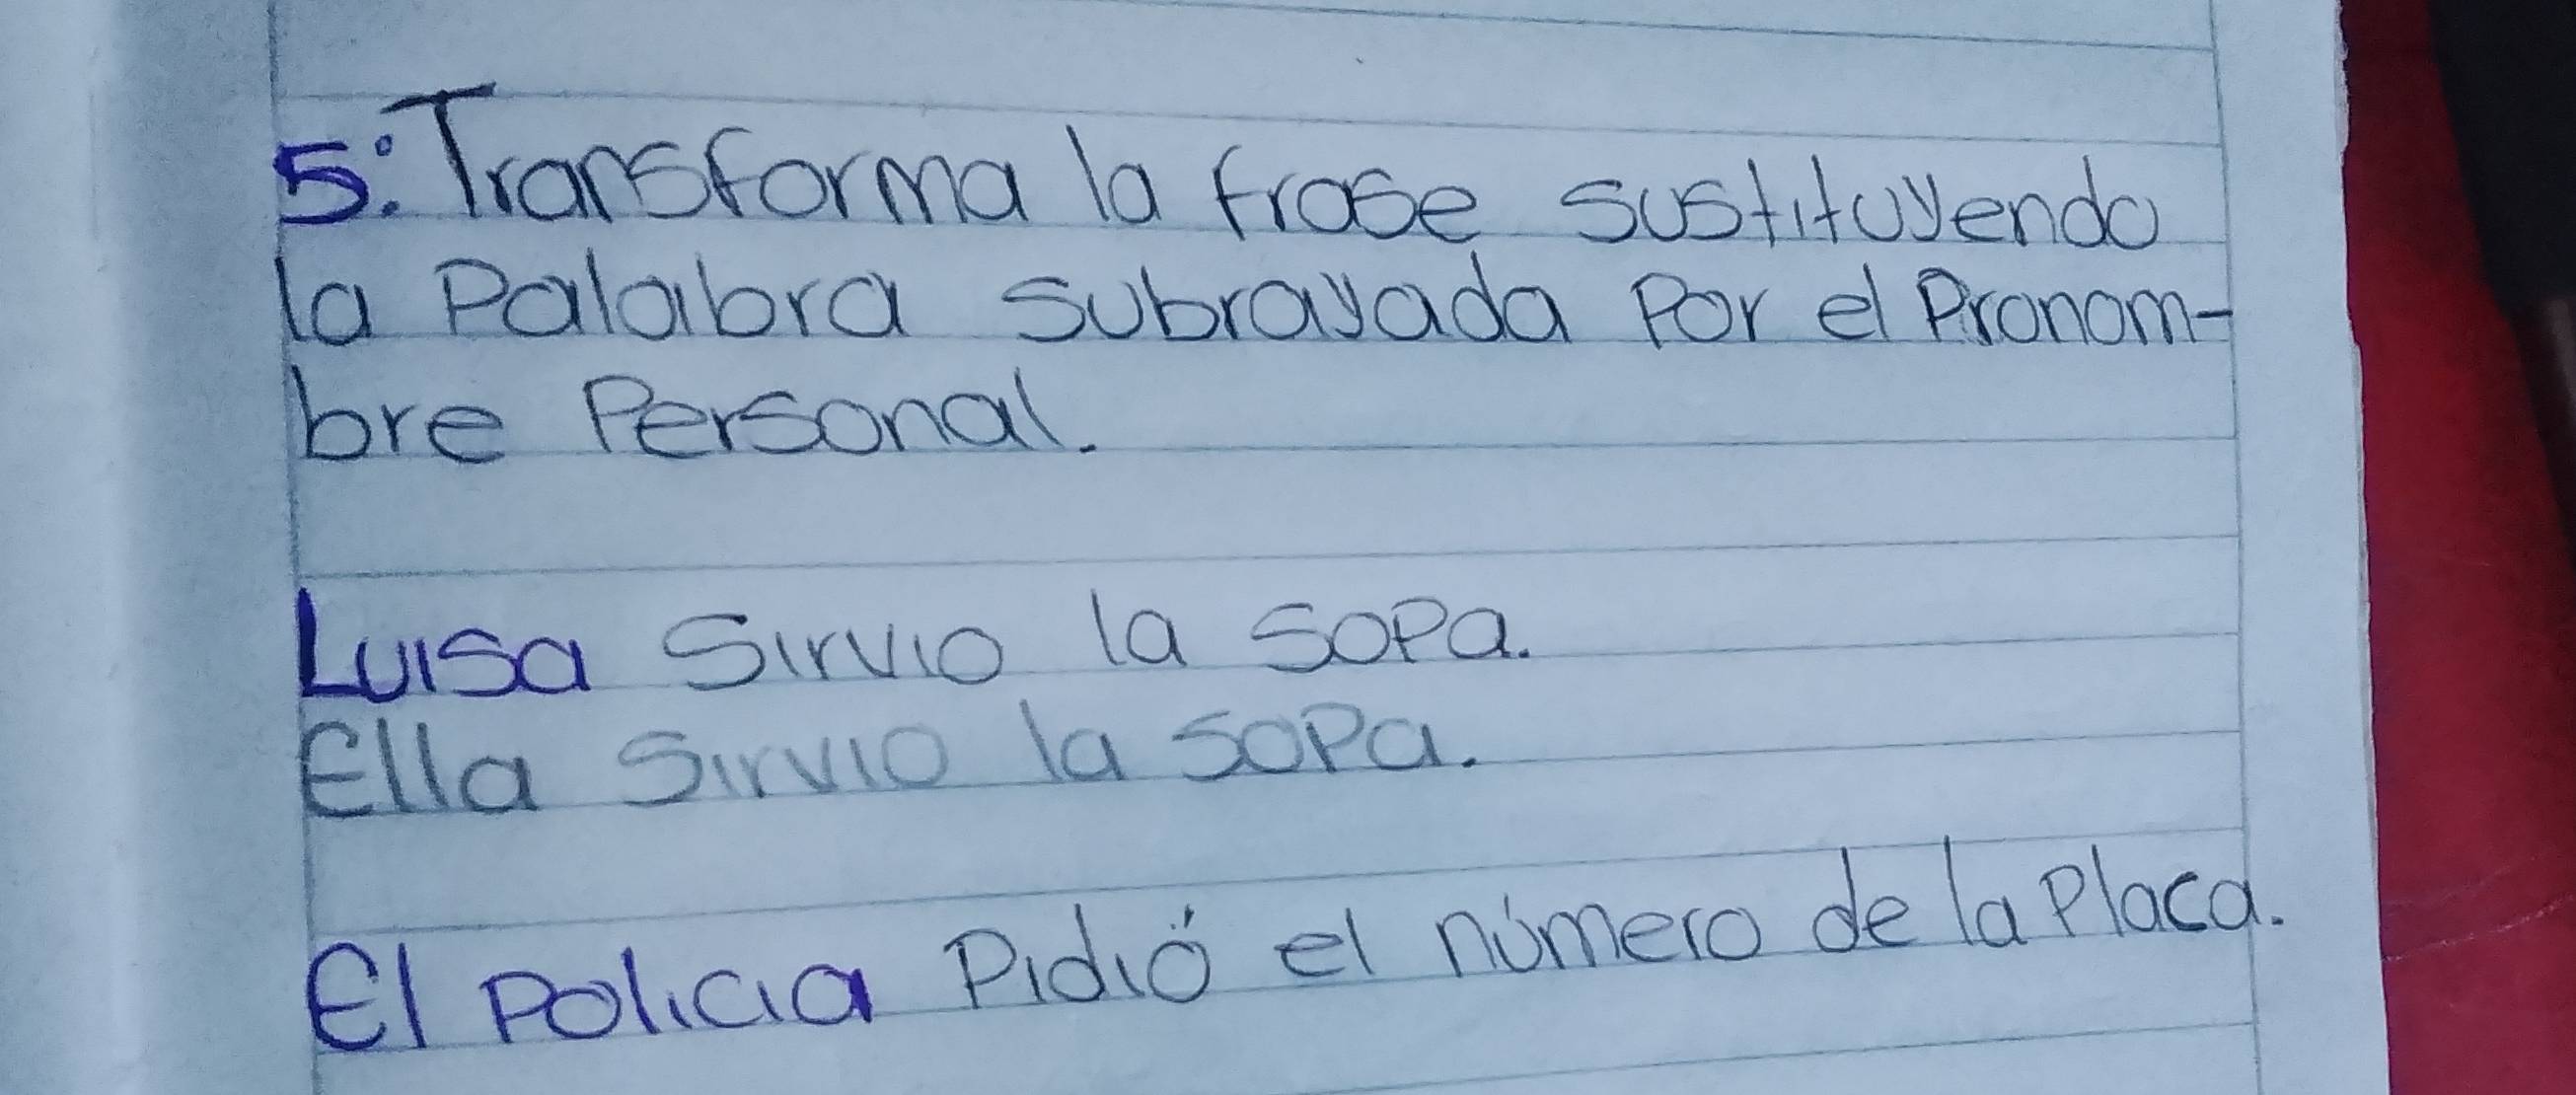 5: Transforma la frase sustituyendo
la Palabra subrayada Por el Pronom-
bre Personal.
Luisa Sirvio la sopa.
Ella Sirvio la sopa.
El policia Pidió el número de la Placa.